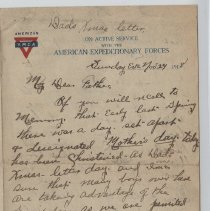 Dads Xmas letter
AMERICAN
YMCA
ON ACTIVE SERVICE
WITH THE
AMERICAN EXPEDITIONARY FORCES
Sunday Eve Nov 24 1918
My Dear Father:
If you will recall to
memory that early last Spring
there was a day set apart
of designated Mother's day. Today
has been christened as Dads
Xmas letter day and I'm
sure that many boys over here
are taking advantage of the
as we are permitted